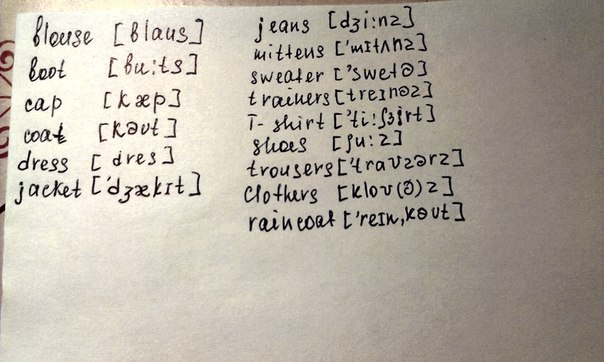 blouse [blaus]
boot [bu:ts]
cap [kæp]
coat [kəʊt]
dress [dres]
jacket ['dʒækɪt]
jeans [dʒi:nz]
mittens ['mɪtʌnz]
sweater ['swetə]
trainers [treɪnəz]
T-shirt ['ti:ʃɜ:rt]
shoes [ʃu:z]
trousers ['traʊzərz]
clothers [kloʊ(ð)z]
raincoat ['reɪn,kəʊt]